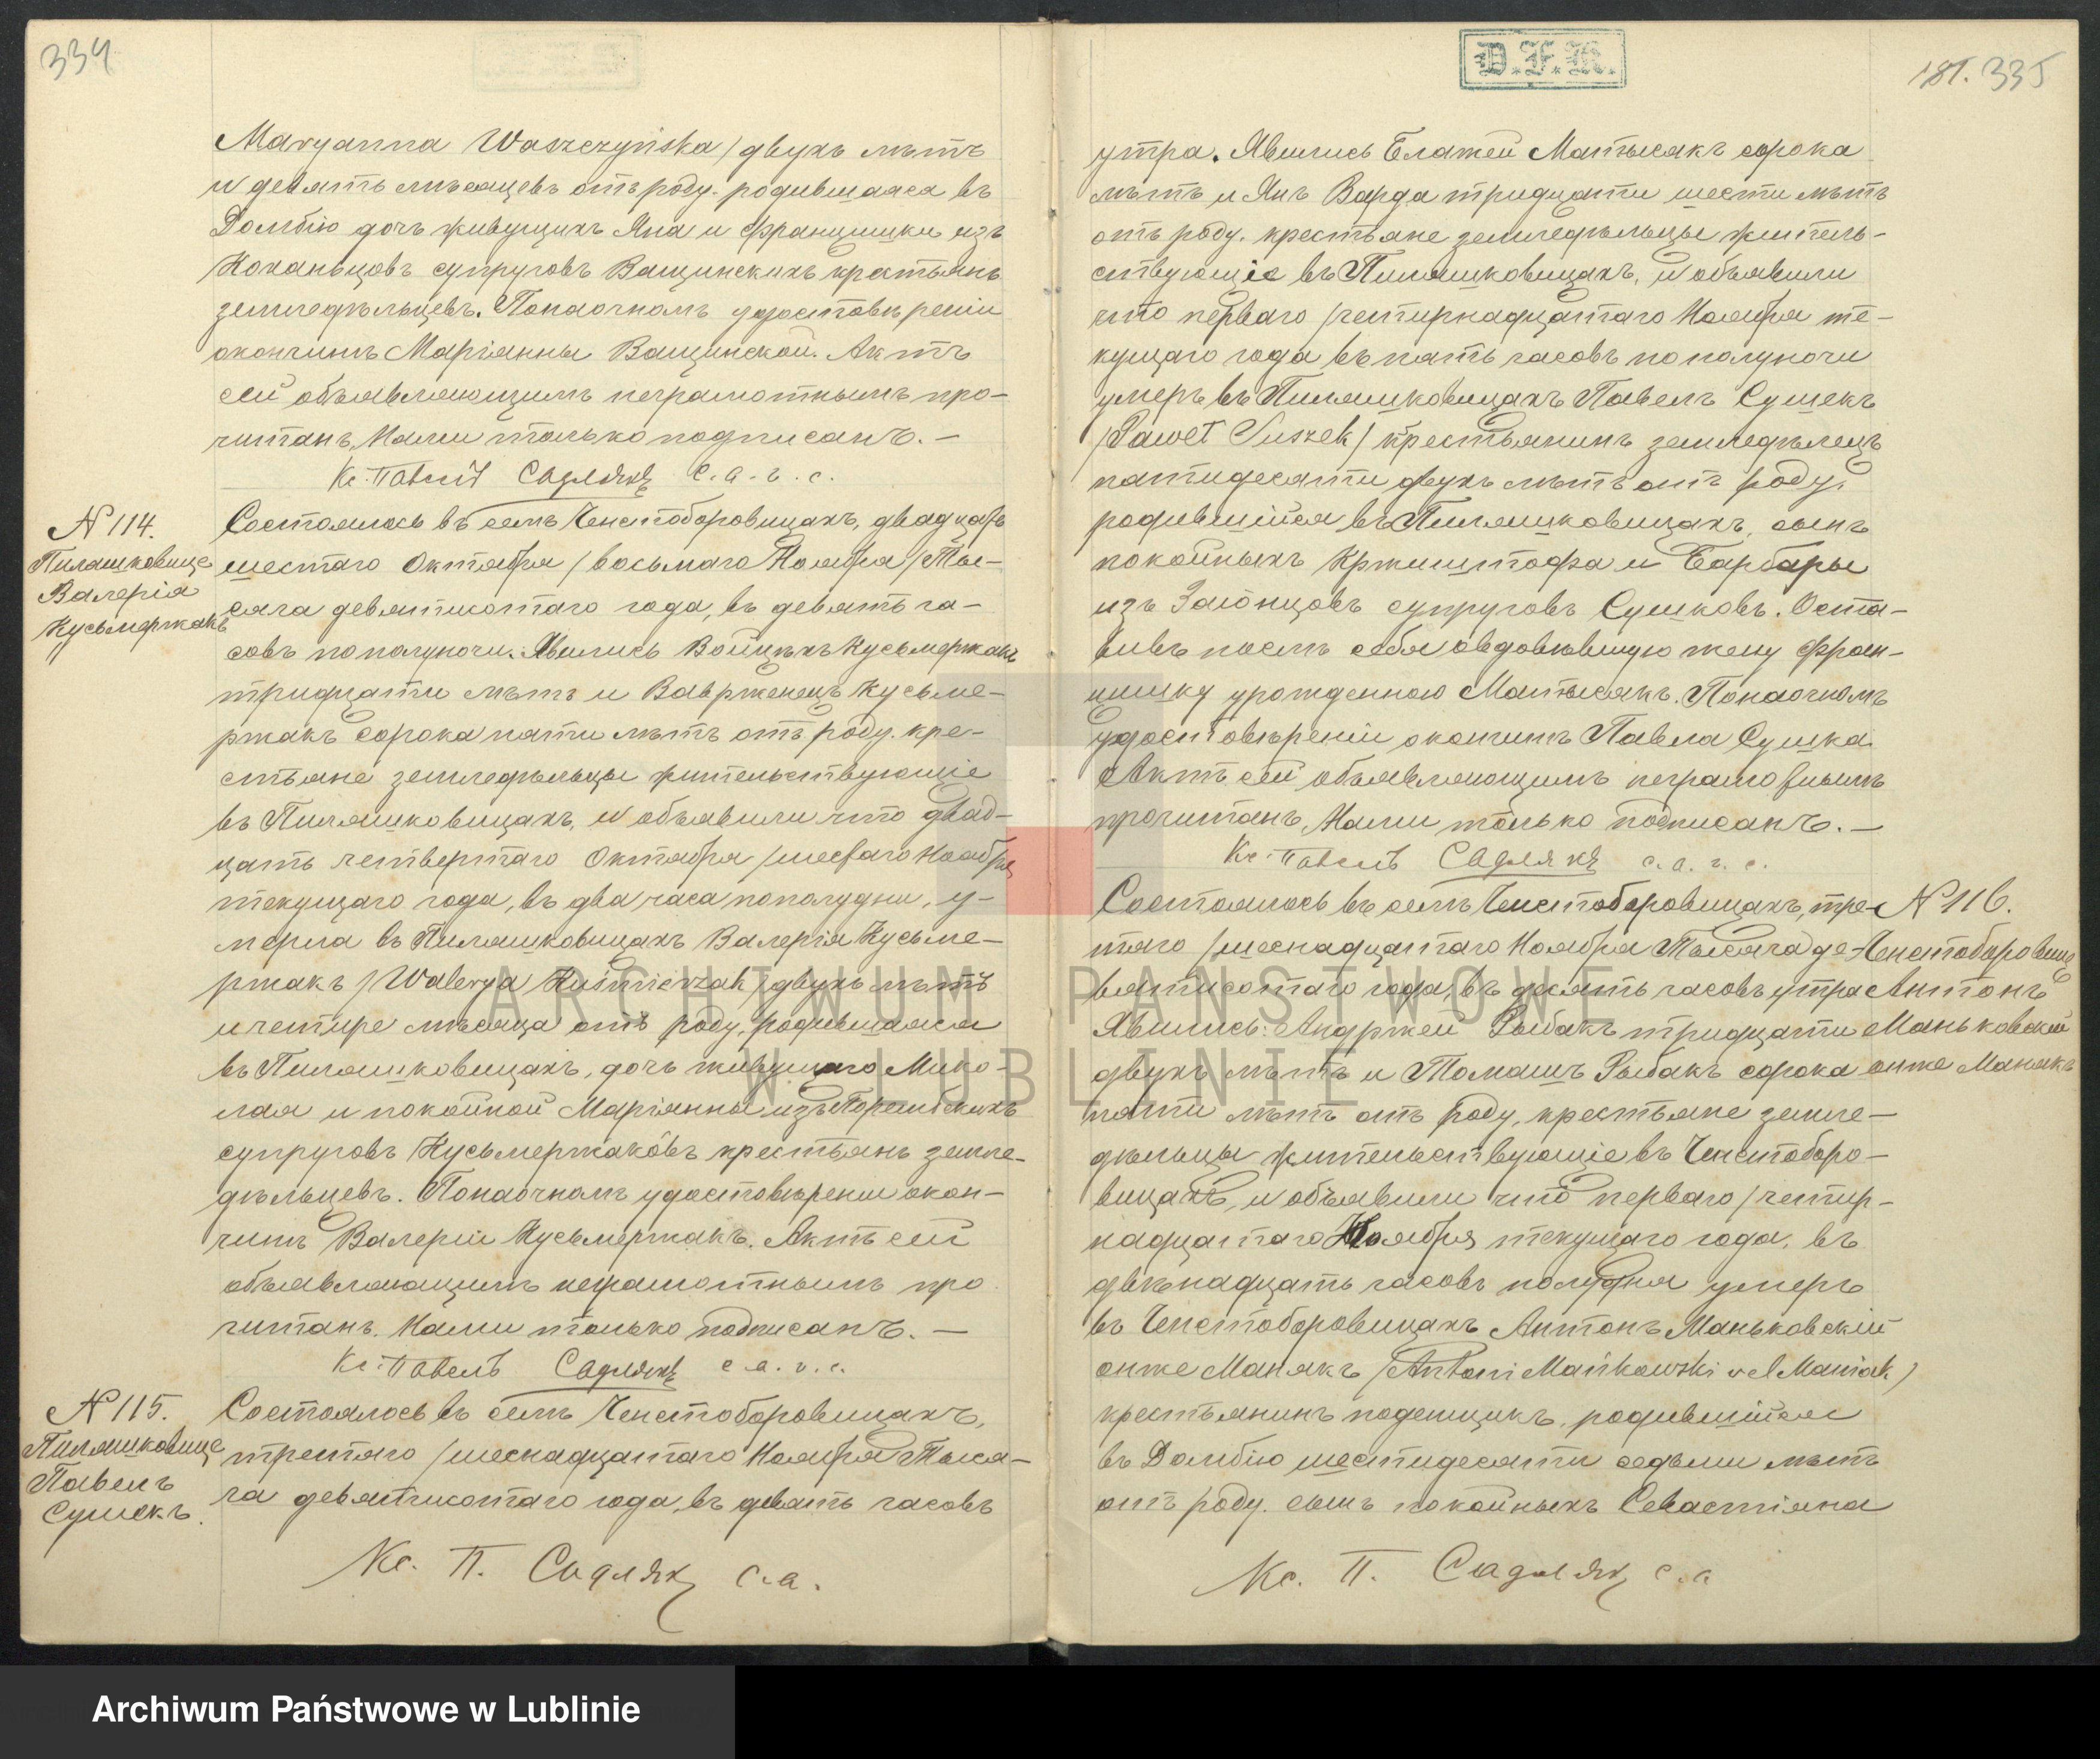 334
Maryanna Waszczyńska / двухъ лѣтъ
и девять мѣсяцевъ отъ роду. родившаяся въ
Домбію дочь живущихъ Яна и Францишки изъ
Коханьцовъ супруговъ Ващинскихъ кратьянъ
земледѣльцевъ. Понаочномъ удостовѣреніи
окончинъ Маріанны Ващинской. Актъ
сей объявляющимъ неграмотнымъ про-
читанъ, Нами только подписанъ. —
Кс. Павелъ Садлякъ С. а. г. с.
N 114.
Пиляшковице
Валерія
Кусьмержакъ
Состоялось въ селѣ Ченстоборовицахъ, двадцать
шестаго Октября / восьмаго Ноября / Ты-
сяча девятисотаго года, въ девять ча-
совъ пополуночи. Явились Войцѣхъ Кусьмержакъ
тридцати лѣтъ и Ваврженецъ Кусьме-
ржакъ сорока пяти лѣтъ отъ роду. кре-
стьяне земледѣльцы жительствующіе
въ Пиляшковицахъ, и объявили что двад-
цать четвертаго Октября / шестаго Ноября
текущаго года, въ два часа пополудни, у-
мерла въ Пиляшковицахъ Валерія Кусьме-
ржакъ / Walerya Kuśmierzak / двухъ лѣтъ
и четире мѣсяца отъ роду, родившаяся
въ Пиляшковицахъ, дочь живущаго Мико-
лая и покойной Маріанны изъ
супруговъ Кусьмержаковъ крестьянъ земле-
дѣльцевъ. Понаочномъ удостовѣреніи окон-
чинъ Валеріи Кусьмержакъ. Актъ сей
объявляющимъ неграмотнымъ про
читанъ. Нами только подписанъ. —
Кс. Павелъ Садлякъ с. а. г. с.
N 115.
Пиляшковице
Павелъ
Сушекъ.
Состоялось въ селѣ Ченстоборовицахъ,
третяго / шеснадцатаго Ноября Тыся-
ча девятисотаго года, въ девять часовъ
Кс. П. Садлякъ с. а.
D.F.K.
181. 335
утра. Явились Блажей Матысякъ сорока
лѣтъ и Янъ Варда тридцати шести лѣтъ
отъ роду. крестьяне земледѣльцы житель-
ствующіе въ Пиляшковицахъ, и объявили
что перваго / четирнадцатаго Ноября те-
кущаго года въ пять часовъ пополуночи
умеръ въ Пиляшковицахъ Павелъ Сушекъ
/ Paweł Suszek / крестьянинъ земледѣлецъ
пятидесяти двухъ лѣтъ отъ роду,
родившійся въ Пиляшковицахъ, сынъ
покойныхъ Кржиштофа и Барбары
изъ Заіонцовъ супруговъ Сушковъ. Оста-
вивъ послѣ себя овдовѣвшую жену Фран-
цишку урожденною Матысякъ. Понаочномъ
удостовѣреніи окончинъ Павла Сушка.
Актъ сей объявляющимъ неграмотнымъ
прочитанъ, Нами только подписанъ. —
Кс. Павелъ Садлякъ с. а. г. с.
N 116.
Ченстоборовице
Антонъ
Маньковскій
онже Манякъ
Состоялось въ селѣ Ченстоборовицахъ, тре-
тяго / шеснадцатаго Ноября Тысяча де-
вятисотаго года, въ десять часовъ утра
Явились: Анджей Рыбакъ тридцати
двухъ лѣтъ и Томашъ Рыбакъ сорока
пяти лѣтъ отъ роду, крестьяне земле-
дѣльцы жительствующіе въ Ченстоборо-
вицахъ, и объявили что перваго / четир-
надцатаго Ноября текущаго года, въ
двѣнадцать часовъ полудня умеръ
въ Ченстоборовицахъ Антонъ Маньковскій
онже Манякъ / Antoni Mańkowski vel Maniak /
крестьянинъ поденщикъ, родившійся
въ Домбію шестидесяти седьми лѣтъ
отъ роду. сынъ покойныхъ Севастіяна
Кс. П. Садлякъ с. а
ARCHIWUM PAŃSTWOWE
W LUBLINIE
Archiwum Państwowe w Lublinie